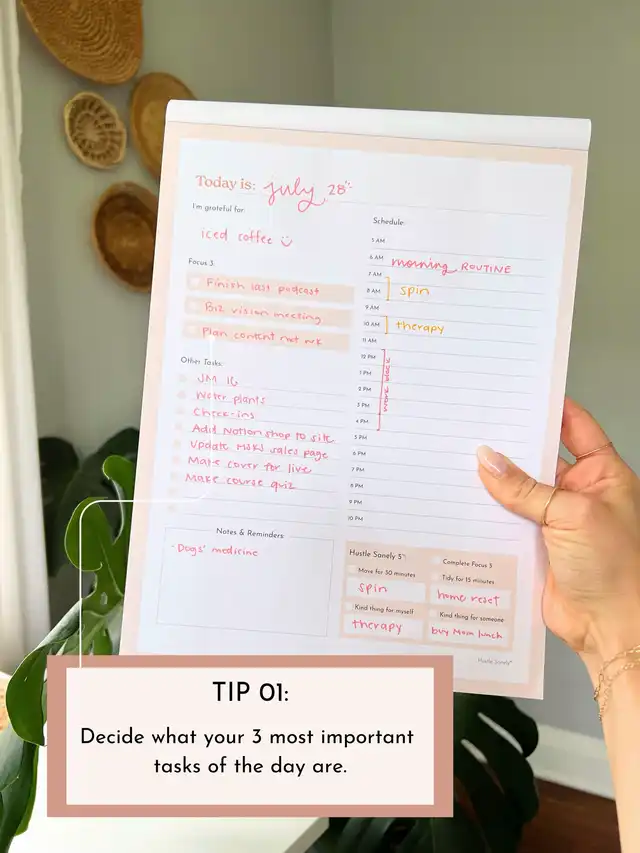 Today is: july 28
I'm grateful for:
iced coffee
Focus 3:
Finish last podcast
Biz vision meeting
Plan content nxt wk
Other Tasks:
JM 16
Water plants
Check-ins
Add Notion shop to site
Update MSKS sales page
Make cover for live
Make course quiz
Notes & Reminders:
· Dogs' medicine
Schedule:
5 AM
6 AM morning ROUTINE
7 AM
8 AM spin
9 AM
10 AM therapy
11 AM
12 PM
1 PM
2 PM
3 PM
4 PM
work block
5 PM
6 PM
7 PM
8 PM
9 PM
10 PM
Hustle Sanely 5™:
Complete Focus 3
Move for 30 minutes
spin
Tidy for 15 minutes
home reset
Kind thing for myself
therapy
Kind thing for someone
buy Mom lunch
Hustle Sanely®
TIP 01:
Decide what your 3 most important
tasks of the day are.